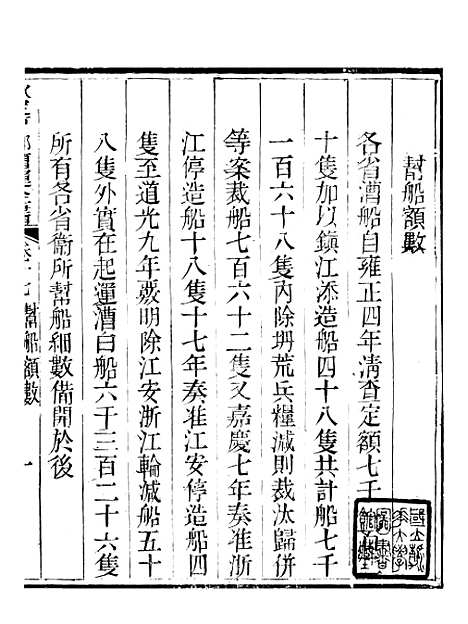 幫船額數
各省漕船自雍正四年清查定額七千
十隻加以鎮江添造船四十八隻共計船七千
一百六十八隻內除坍荒兵糧減則裁汰歸併
等案裁船七百六十二隻又嘉慶七年奏准浙
江停造船十八隻十七年奏准江安停造船四
隻至道光九年覈明除江安浙江輪減船五十
八隻外實在起運漕白船六千三百二十六隻
所有各省衞所幫船細數備開於後
幫船額數 一